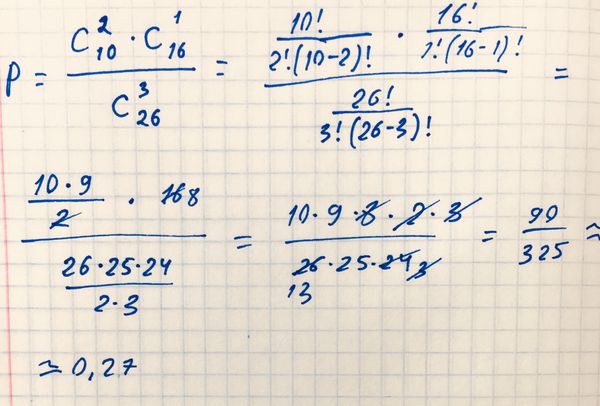 P = (C₁₀² · C₁₆¹) / C₂₆³ = (10! / 2!(10-2)! · 16! / 1!(16-1)!) / (26! / 3!(26-3)!) =
(10·9 / 2 · 16 8) / (26·25·24 / 2·3) = (10·9·8·2·3) / (26 13·25·24 3) = 90 / 325 ≈
≈ 0,27